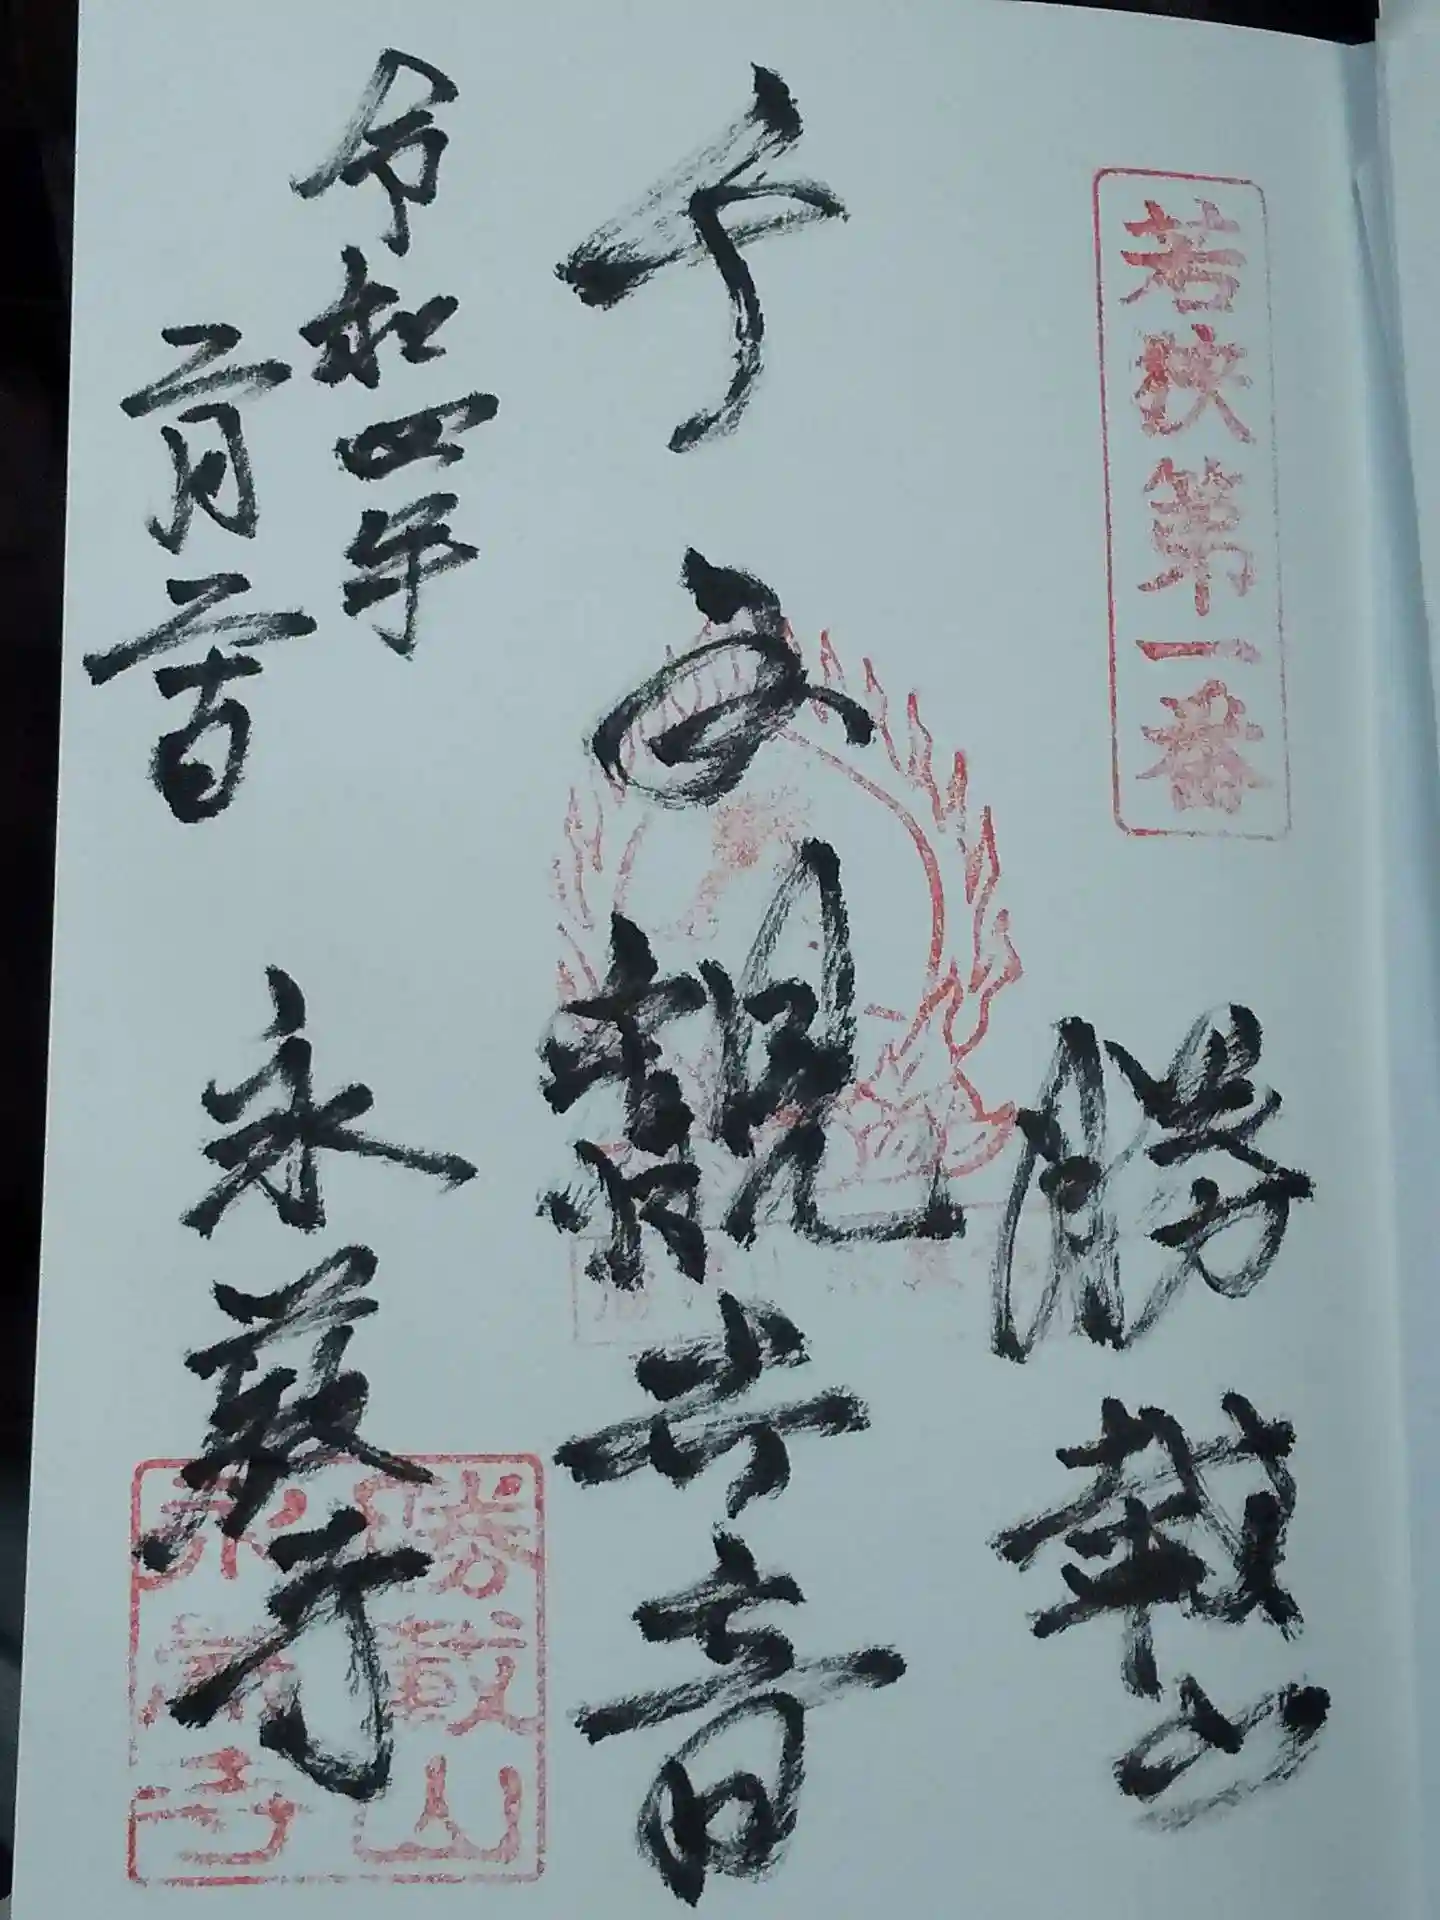 若狭第一番
勝載山
千手観世音
令和四年
二月二十日
永厳寺
勝載山
永厳寺